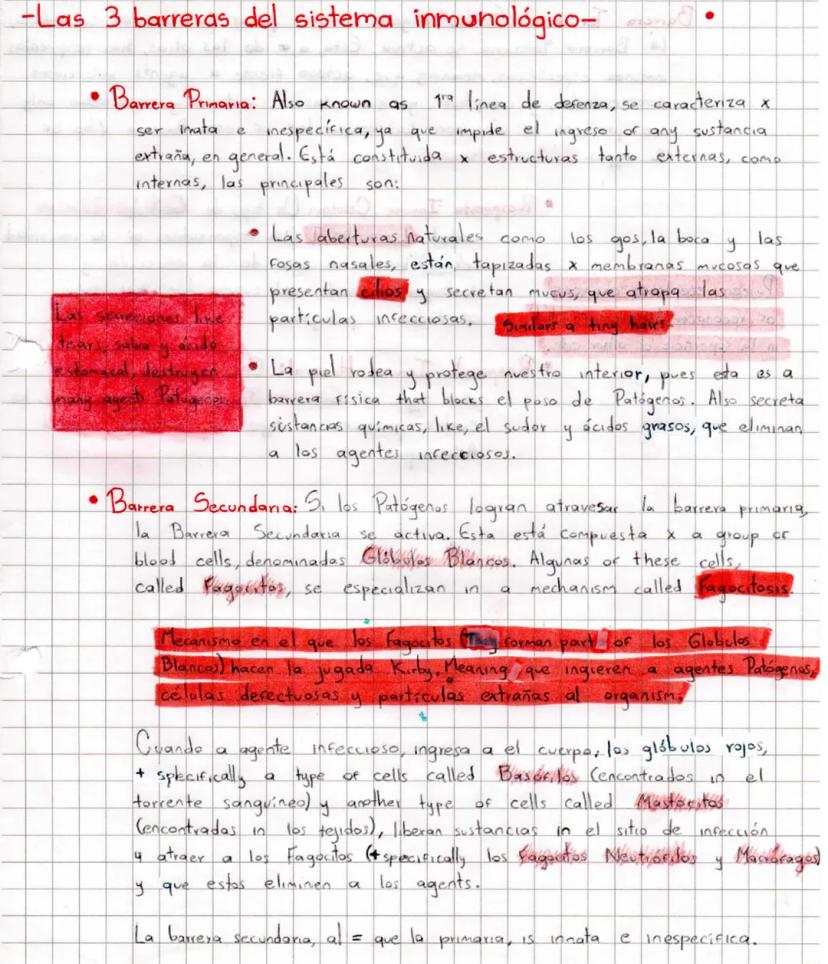 -Las 3 barreras del sistema inmunológico-
• Barrera Primaria: Also known as 1ra línea de defenza, se caracteriza x
ser inata e inespecífica, ya que impide el ingreso of any sustancia
extraña, en general. Está constituida x estructuras tanto externas, como
internas, las principales son:
• Las aberturas naturales como los ojos, la boca y las
fosas nasales, están tapizadas x membranas mucosas que
presentan cilios y secretan mucus, que atrapa las
partículas infecciosas. Similars a tiny hairs
Las secreciones like
tears, saliva y ácido
estomacal, destruyen
many agents Patógenos.
• La piel rodea y protege nuestro interior, pues esta es a
barrera física that blocks el paso de Patógenos. Also secreta
sustancias químicas, like, el sudor y ácidos grasos, que eliminan
a los agentes infecciosos.
• Barrera Secundaria: Si los Patógenos logran atravesar la barrera primaria,
la Barrera Secundaria se activa. Esta está compuesta x a group of
blood cells, denominadas Glóbulos Blancos. Algunas of these cells,
called Fagocitos, se especializan in a mechanism called Fagocitosis.
Mecanismo en el que los Fagocitos (They forman part of los Globulos
Blancos) hacen la jugada Kirby. Meaning que ingieren a agentes Patógenos,
células defectuosas y partículas extrañas al organism.
Cuando a agente infeccioso, ingresa a el cuerpo, los glóbulos rojos,
+ specifically a type of cells called Basófilos (encontrados in el
torrente sanguíneo) y another type of cells called Mastocitos
(encontradas in los tejidos), liberan sustancias in el sitio de infección
y atraer a los Fagocitos (+specifically los Fagocitos Neutrófilos y Macrófagos)
y que estos eliminen a los agents.
La barrera secundaria, al = que la primaria, is innata e inespecífica.